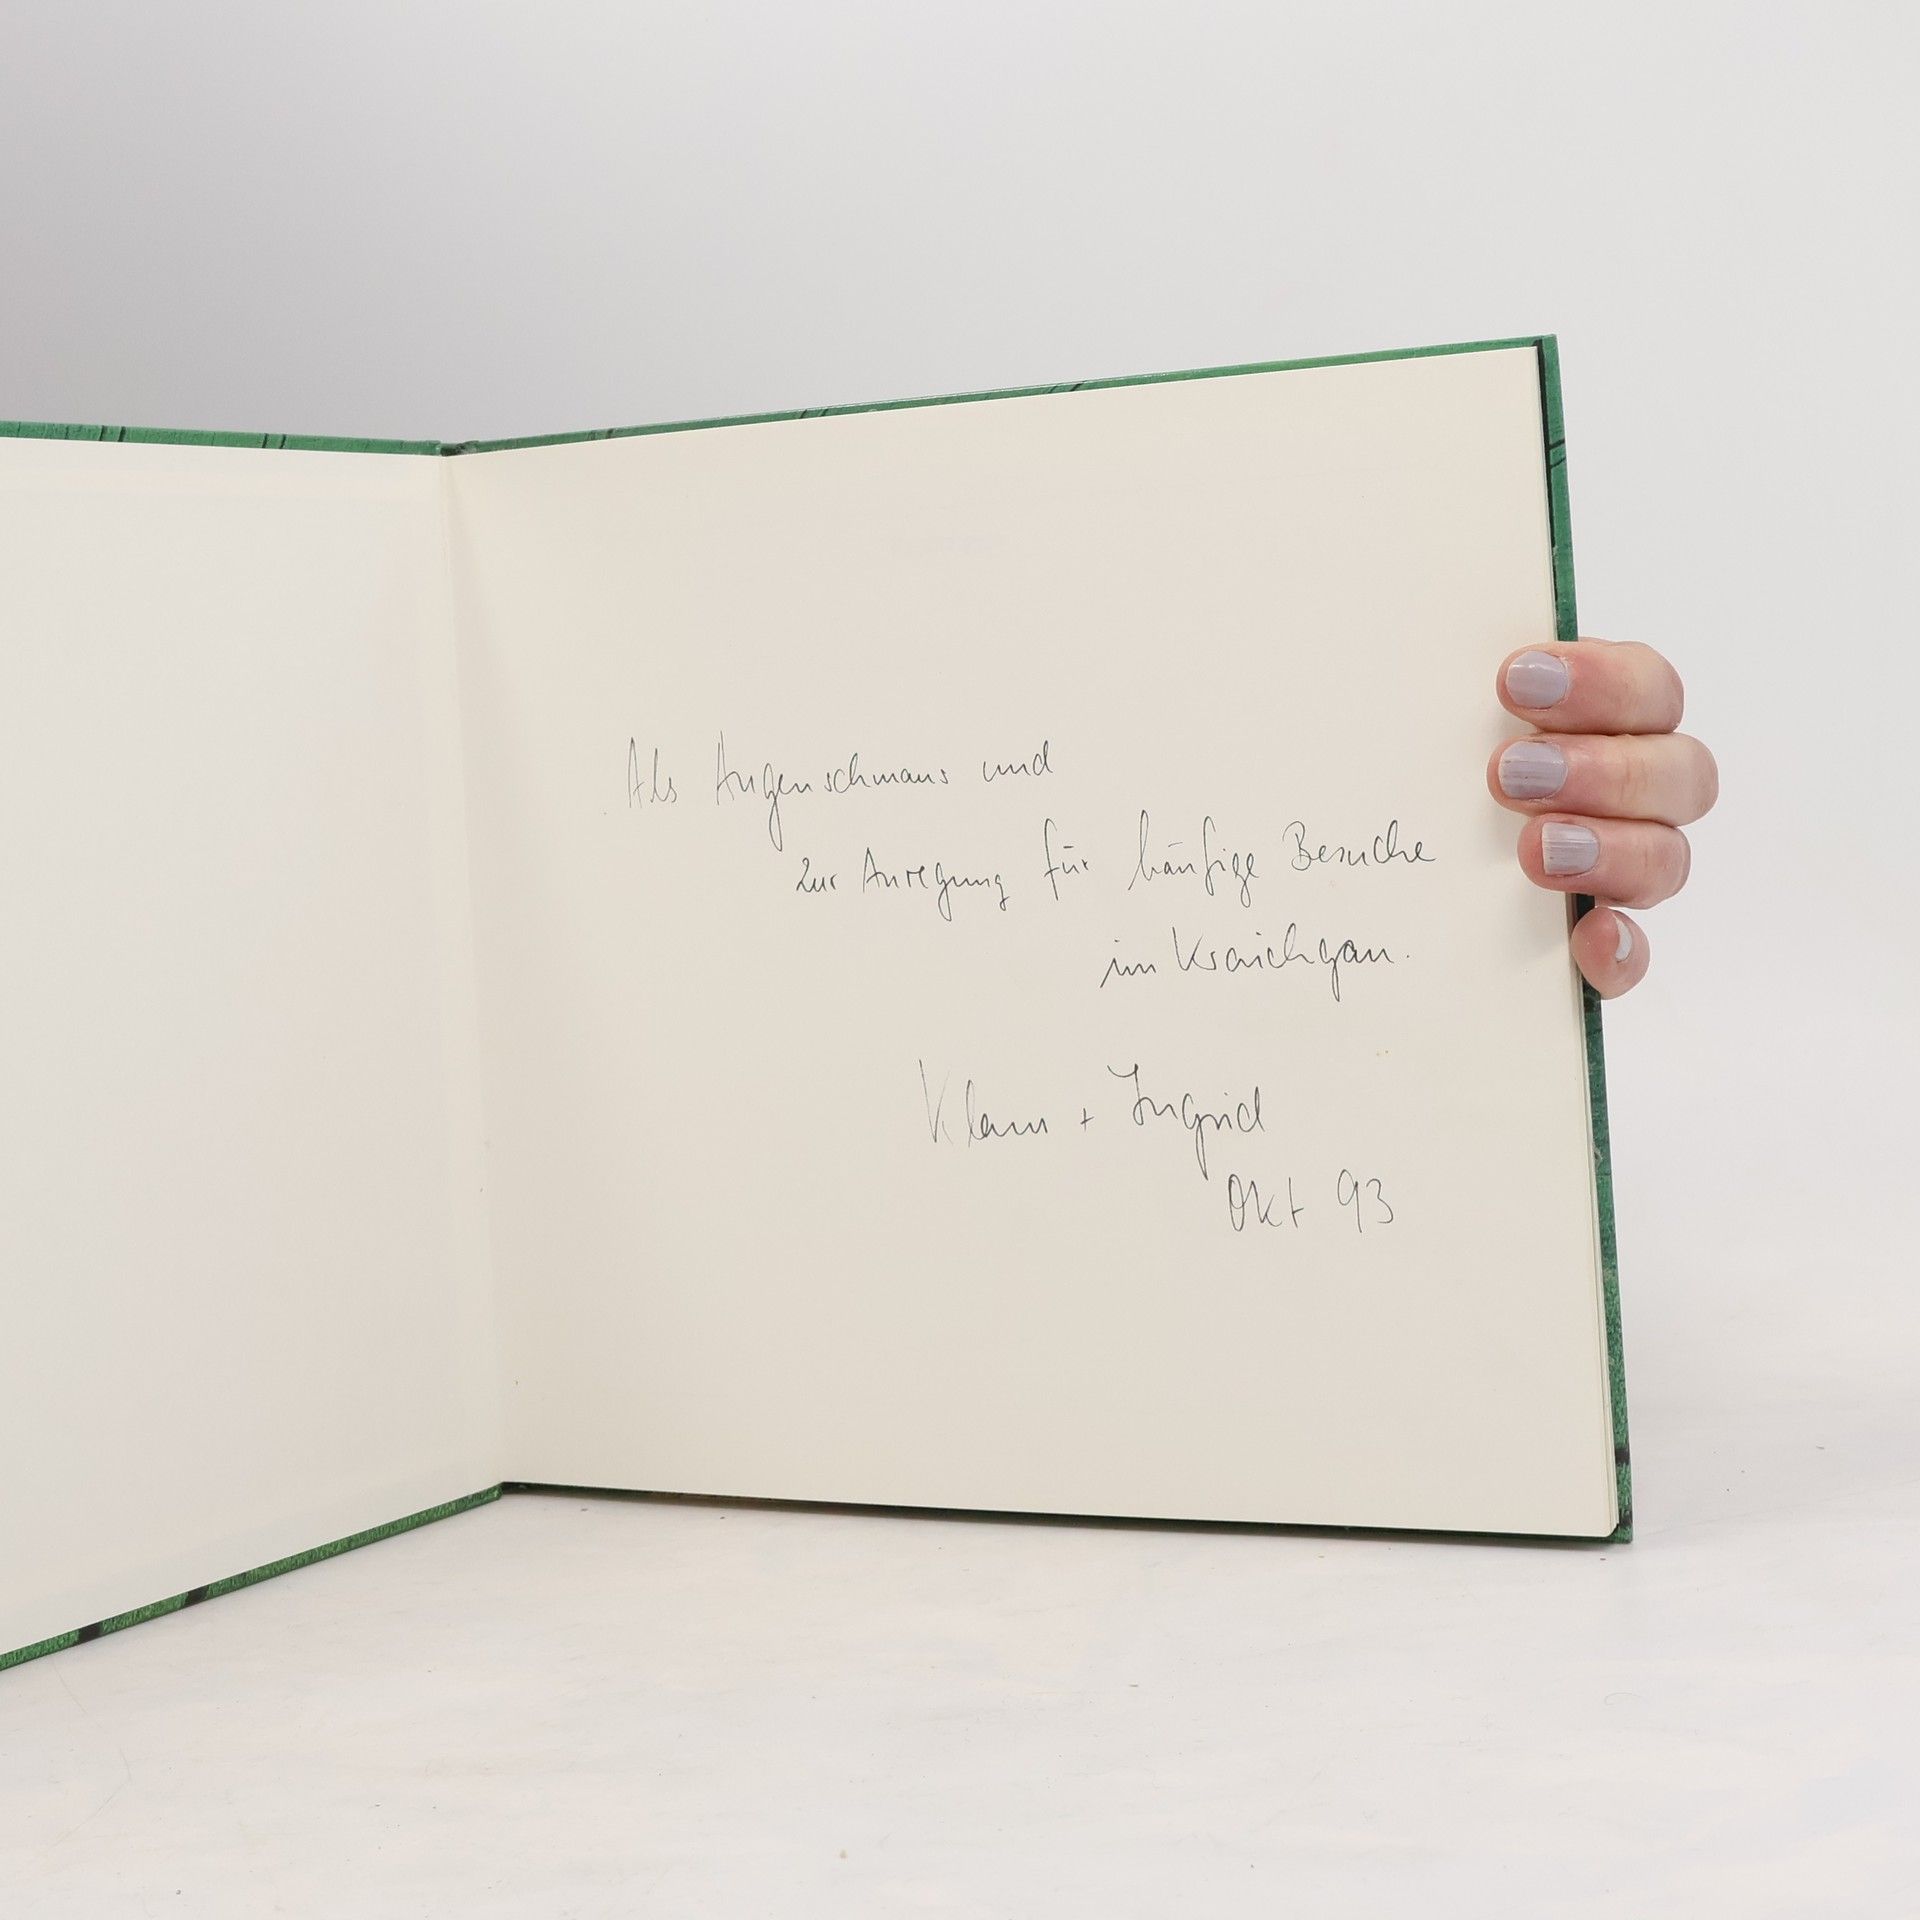 Als Augenschmaus und
zur Anregung für häufige Besuche
im Kraichgau.
Klaus + Ingrid
Okt 93